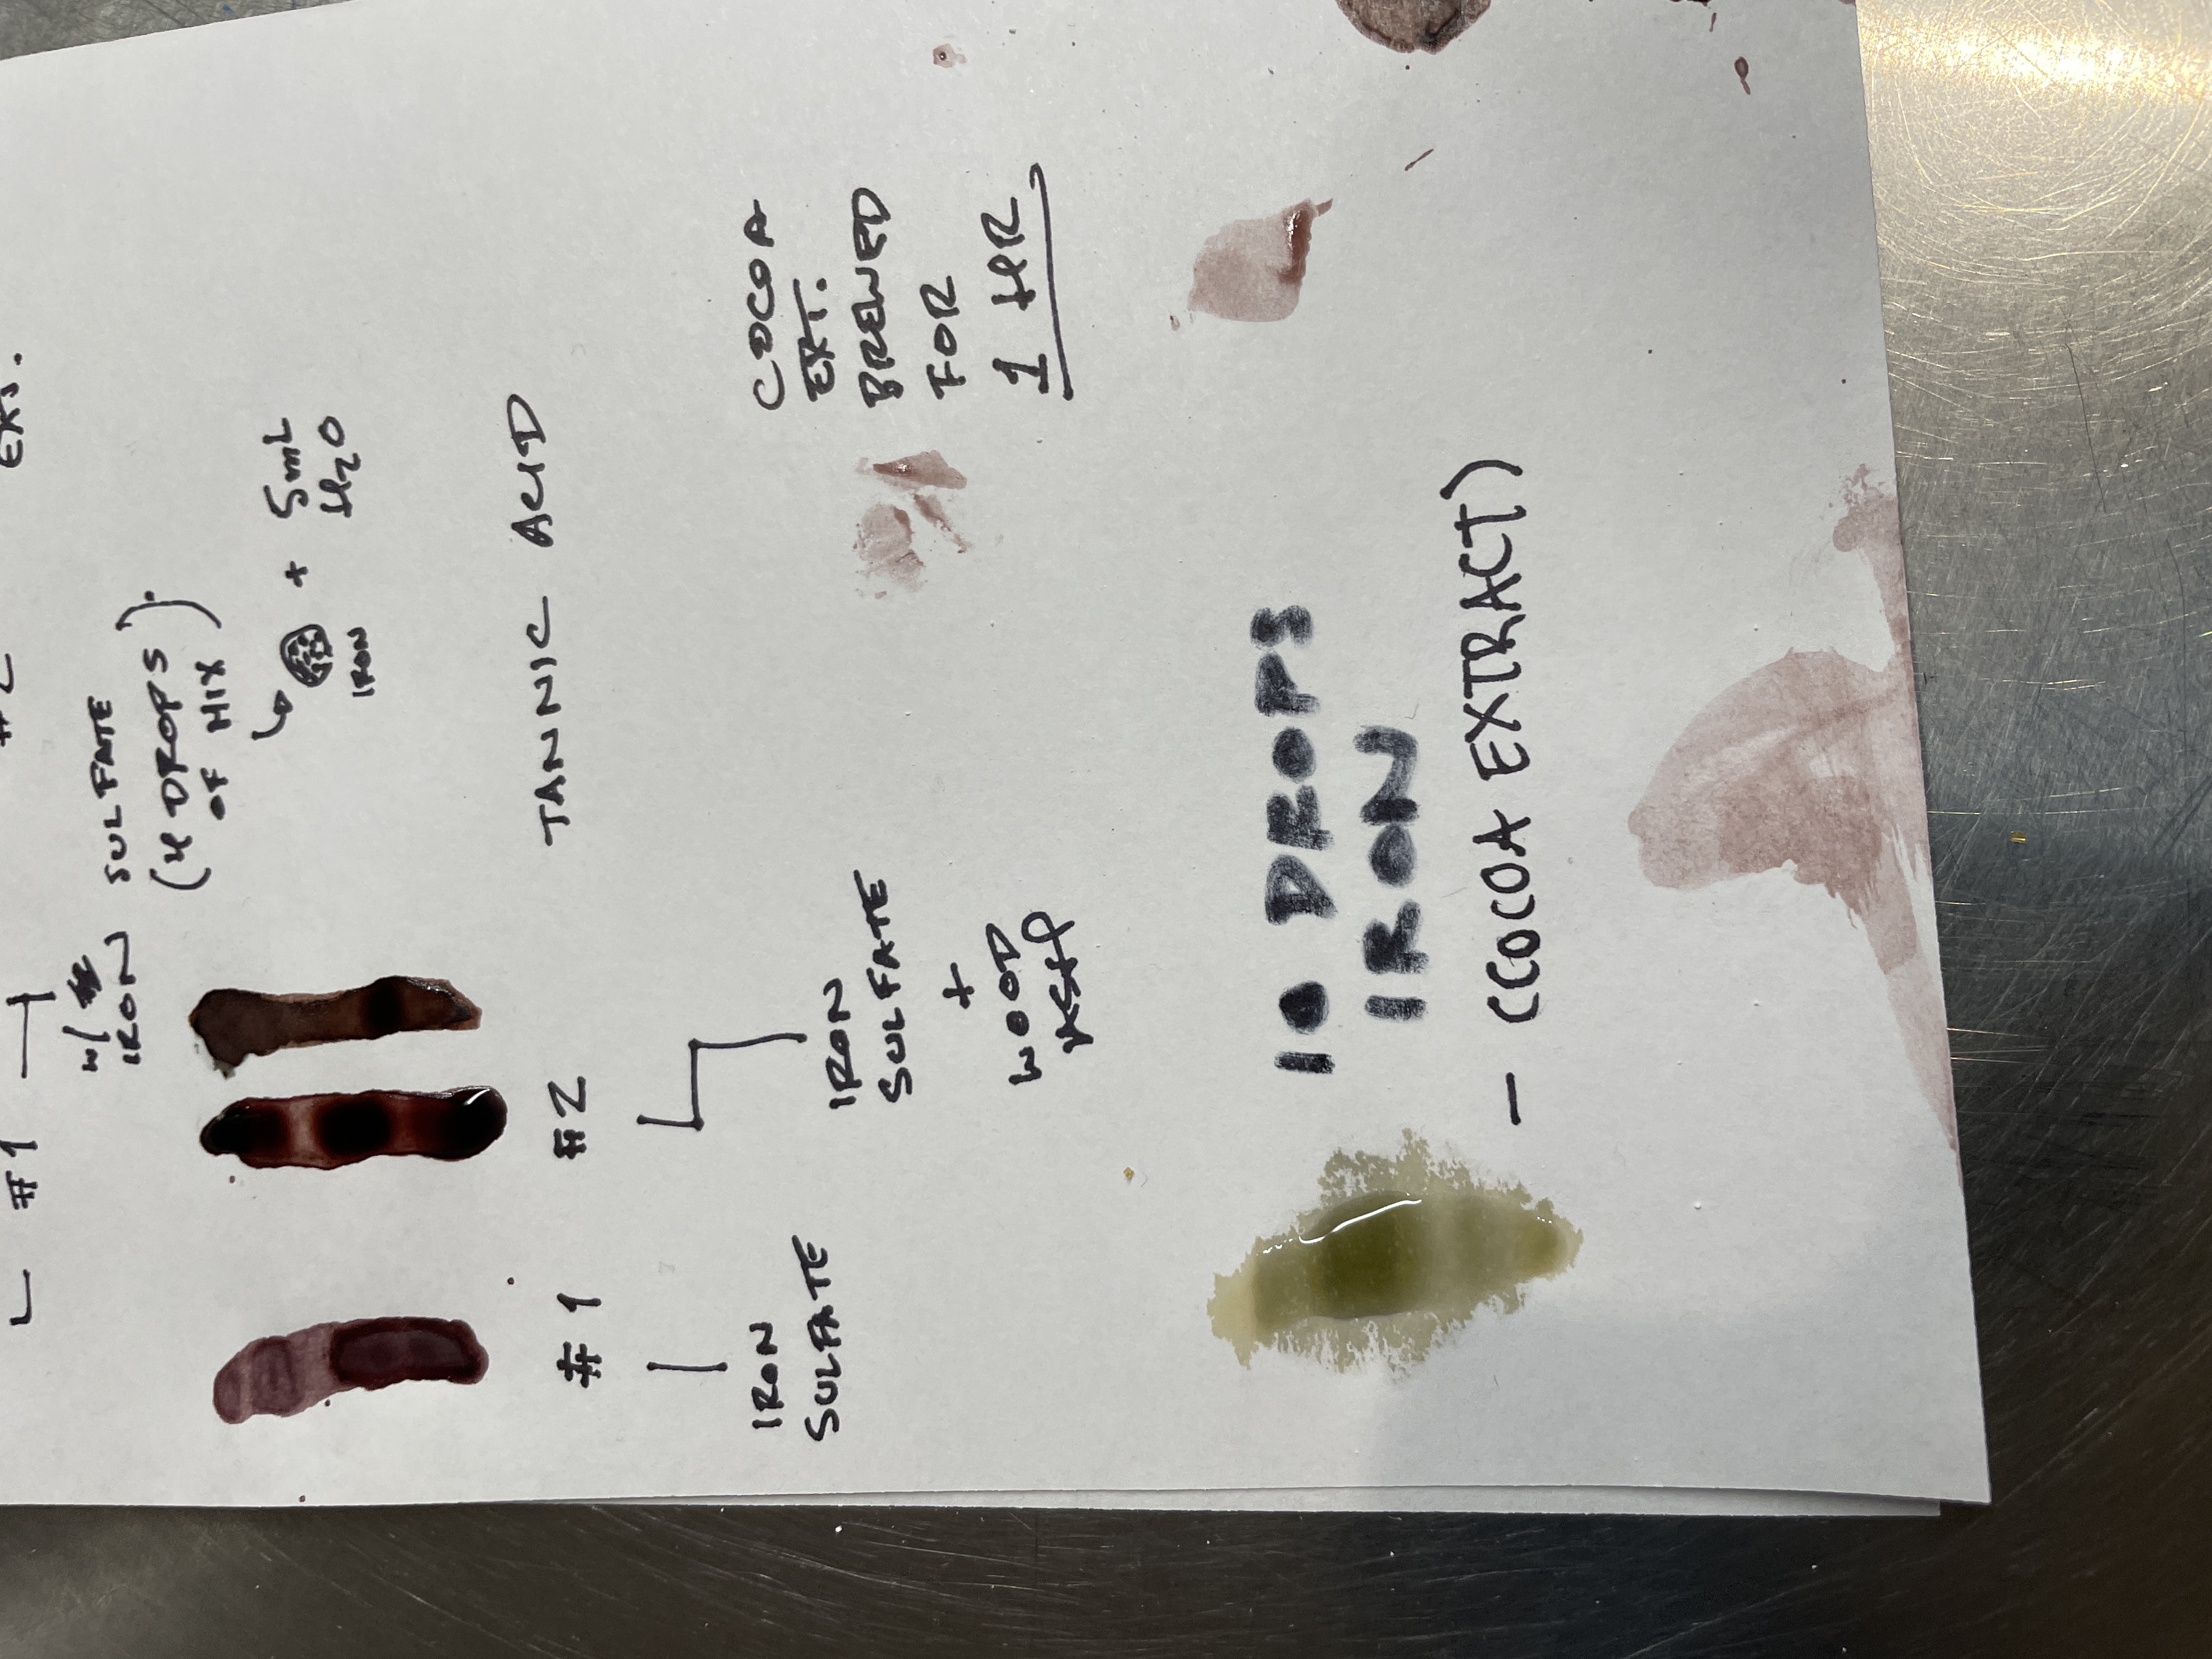 #1
#2
EXT.
w/
IRON SULFATE
(4 DROPS)
OF MIX
IRON + 5mL
H2O
#1 #2 TANNIC ACID
IRON
SULFATE
IRON
SULFATE
+
WOOD
COCOA
EXT.
BREWED
FOR
1 HR
10 DROPS
IRON
- (COCOA EXTRACT)